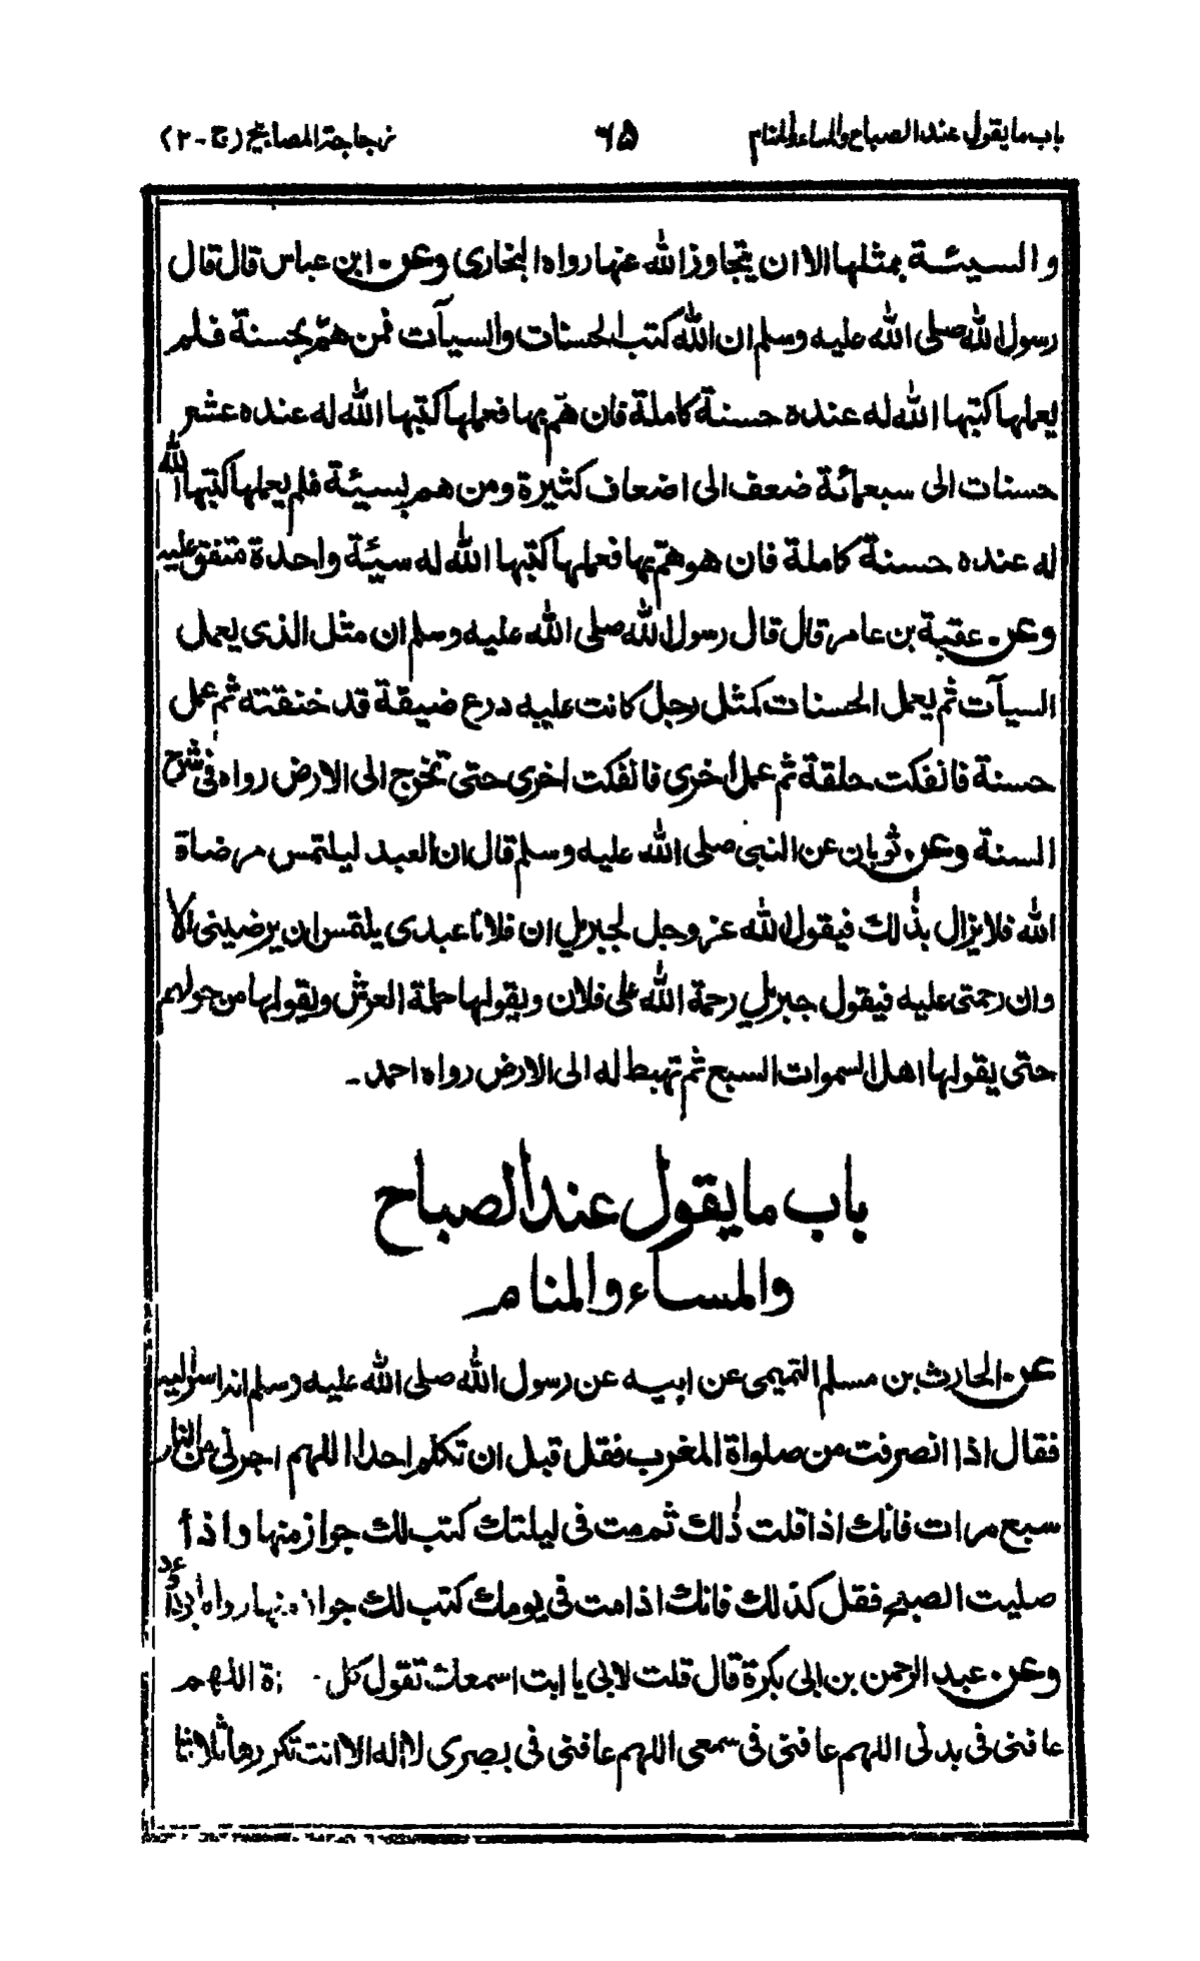 باب ما يقول عند الصباح والمساء والمنام ٦٥ زجاجة المصابيح (ج - ٣)
والسيئة بمثلها الا ان يتجاوز الله عنها رواه البخارى وعن ابن عباس قال قال
رسول الله صلى الله عليه وسلم ان الله كتب الحسنات والسيآت فمن همّ بحسنة فلم
يعملها كتبها الله له عنده حسنة كاملة فان همّ بها فعملها كتبها الله له عنده عشر
حسنات الى سبعمائة ضعف الى اضعاف كثيرة ومن هم بسيئة فلم يعملها كتبها الله
له عنده حسنة كاملة فان هو همّ بها فعملها كتبها الله له سيئة واحدة متفق عليه
وعن عقبة بن عامر قال قال رسول الله صلى الله عليه وسلم ان مثل الذى يعمل
السيآت ثم يعمل الحسنات كمثل رجل كانت عليه درع ضيقة قد خنقته ثم عمل
حسنة فانفكت حلقة ثم عمل اخرى فانفكت اخرى حتى تخرج الى الارض رواه فى شرح
السنة وعن ثوبان عن النبى صلى الله عليه وسلم قال ان العبد ليلتمس مرضاة
الله فلا يزال بذلك فيقول الله عز وجل لجبريل ان فلانا عبدى يلتمس ان يرضينى الا
وان رحمتى عليه فيقول جبريل رحمة الله على فلان ويقولها حملة العرش ويقولها من حولهم
حتى يقولها اهل السموات السبع ثم تهبط له الى الارض رواه احمد -
باب ما يقول عند الصباح
والمساء والمنام
عن الحارث بن مسلم التميمى عن ابيه عن رسول الله صلى الله عليه وسلم انه اسر اليه
فقال اذا انصرفت من صلواة المغرب فقل قبل ان تكلم احدا اللهم اجرنى من النار
سبع مرات فانك اذا قلت ذلك ثم مت فى ليلتك كتب لك جواز منها واذا
صليت الصبح فقل كذلك فانك اذا مت فى يومك كتب لك جواز منها رواه ابوداؤد
وعن عبد الرحمن بن ابى بكرة قال قلت لابى يا ابت اسمعك تقول كل اللهم
عافنى فى بدنى اللهم عافنى فى سمعى اللهم عافنى فى بصرى لا اله الا انت تكررها ثلاثا